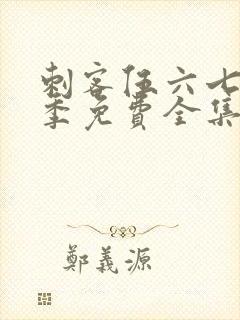 刺客伍六七
季免費全集
鄭義源